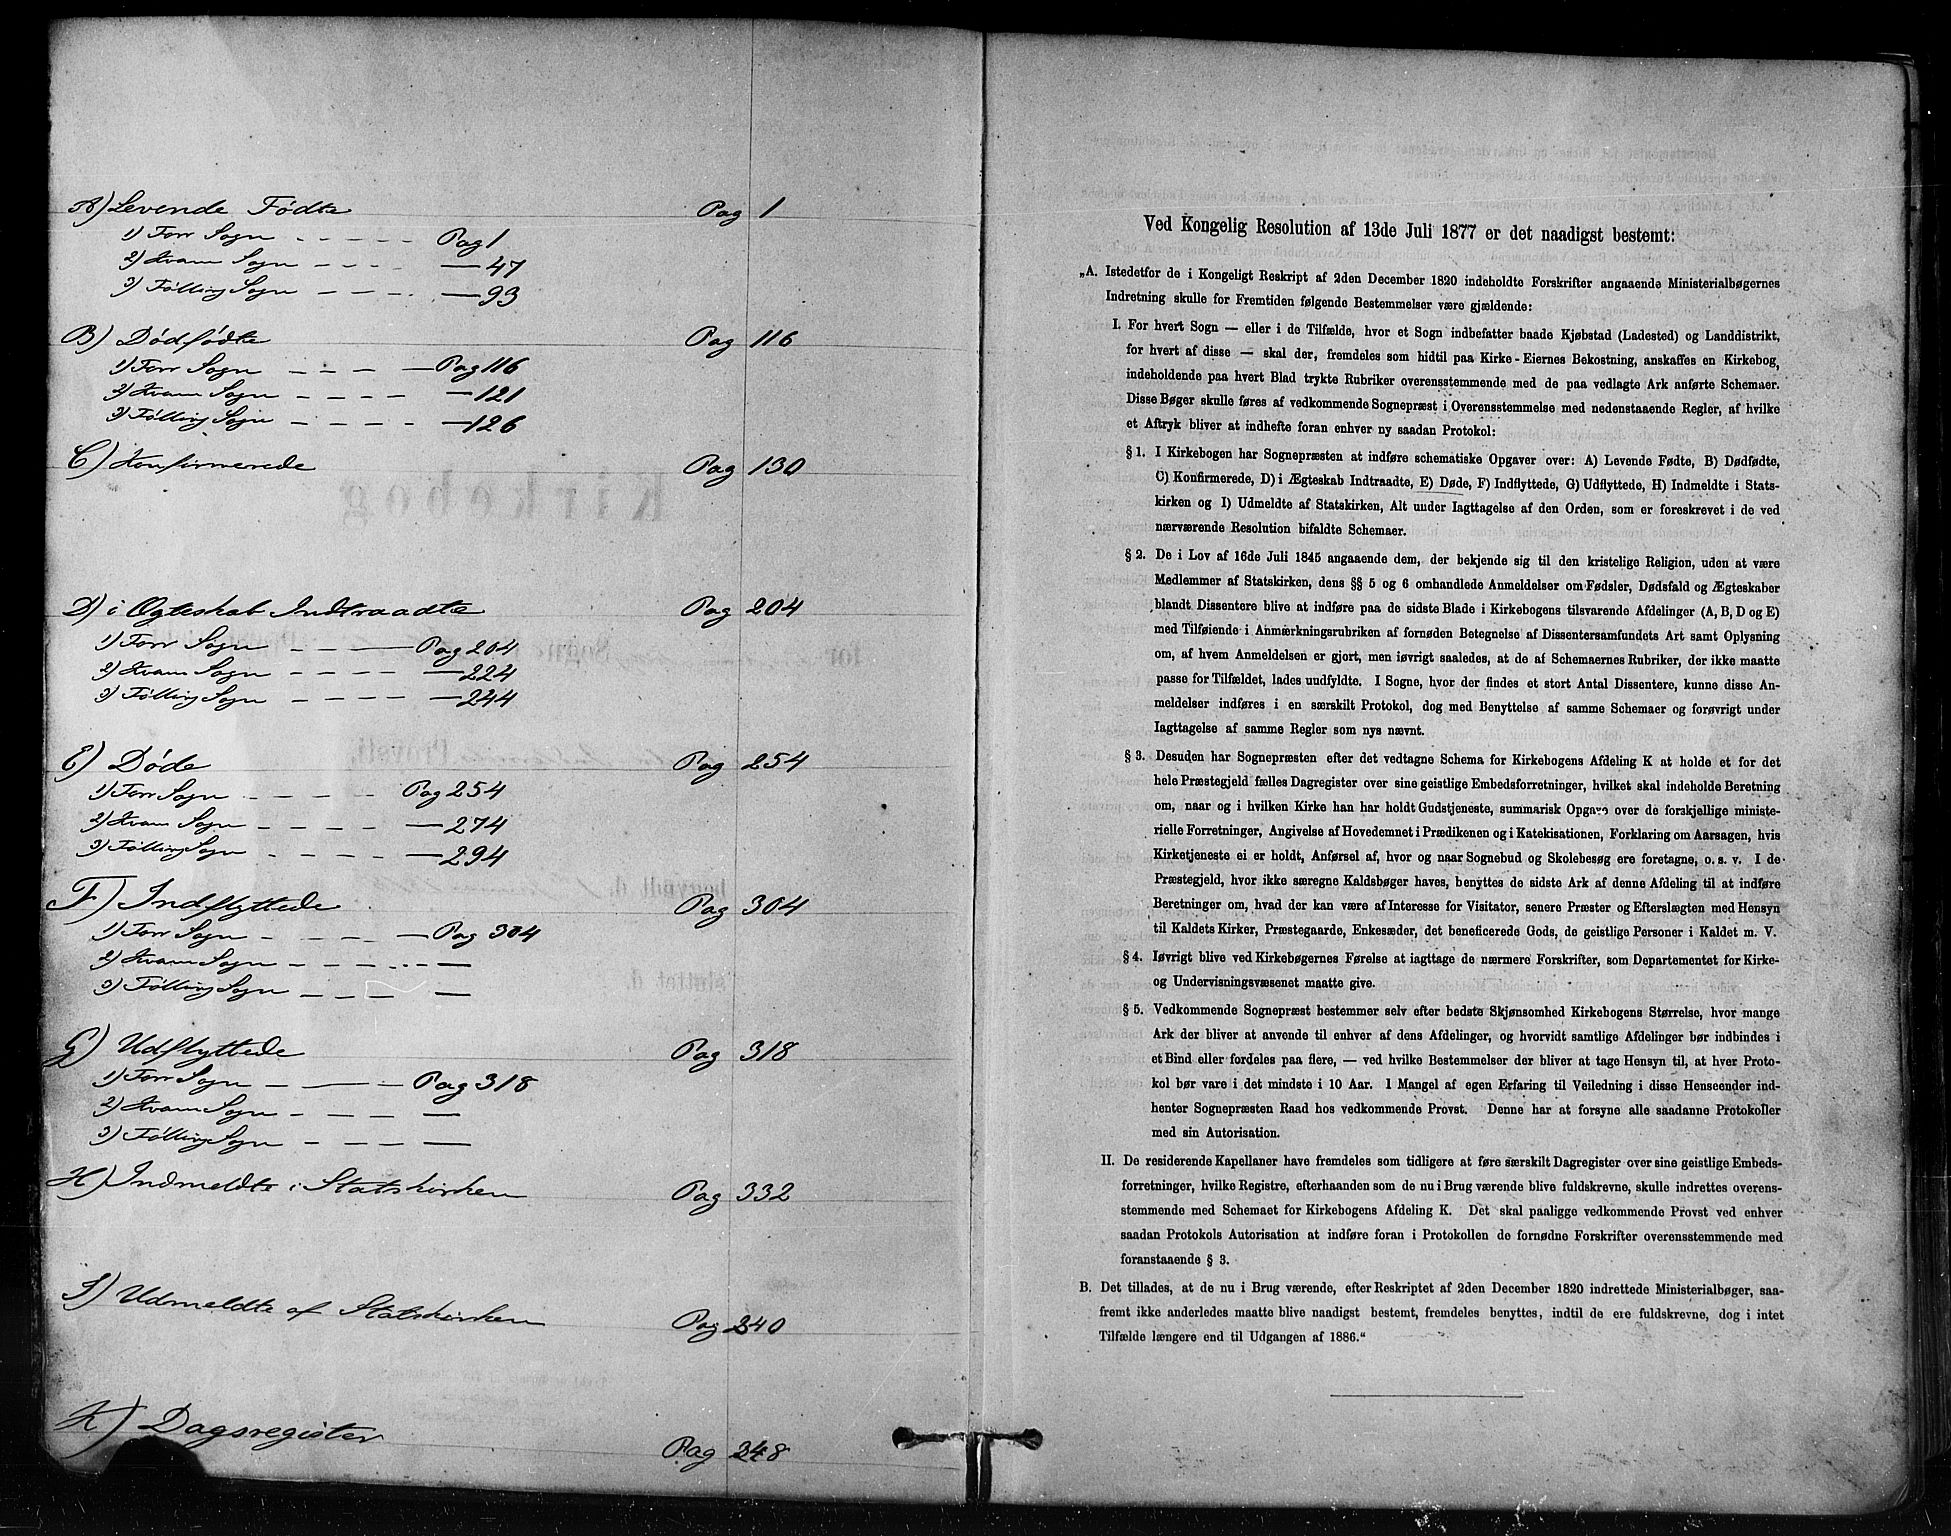 A) Levende Fødte Pag 1
1) For Sogn Pag 1
2) Kvam Sogn — 47
3) Følling Sogn — 93
B) Dødfødte Pag 116
1) For Sogn — Pag 116
2) Kvam Sogn — 121
3) Følling Sogn — 126
C) Konfirmerede Pag 130
D) i Ægteskab Indtraadte Pag 204
1) For Sogn — Pag 204
2) Kvam Sogn — 224
3) Følling Sogn — 244
E) Døde Pag 254
1) For Sogn Pag 254
2) Kvam Sogn — 274
3) Følling Sogn — 294
F) Indflyttede Pag 304
1) For Sogn — Pag 304
2) Kvam Sogn —
3) Følling Sogn —
G) Udflyttede Pag 318
1) For Sogn — Pag 318
2) Kvam Sogn —
3) Følling Sogn —
H) Indmeldte i Statskirken Pag 332
I) Udmeldte af Statskirken Pag 340
K) Dagsregister Pag 348
Ved Kongelig Resolution af 13de Juli 1877 er det naadigst bestemt:
„A. Istedetfor de i Kongeligt Reskript af 2den December 1820 indeholdte Forskrifter angaaende Ministerialbøgernes
Indretning skulle for Fremtiden følgende Bestemmelser være gjældende:
I. For hvert Sogn — eller i de Tilfælde, hvor et Sogn indbefatter baade Kjøbstad (Ladested) og Landdistrikt,
for hvert af disse — skal der, fremdeles som hidtil paa Kirke-Eiernes Bekostning, anskaffes en Kirkebog,
indeholdende paa hvert Blad trykte Rubriker overensstemmende med de paa vedlagte Ark anførte Schemaer.
Disse Bøger skulle føres af vedkommende Sognepræst i Overensstemmelse med nedenstaaende Regler, af hvilke
et Aftryk bliver at indhefte foran enhver ny saadan Protokol:
§ 1. I Kirkebogen har Sognepræsten at indføre schematiske Opgaver over: A) Levende Fødte, B) Dødfødte,
C) Konfirmerede, D) i Ægteskab Indtraadte, E) Døde, F) Indflyttede, G) Udflyttede, H) Indmeldte i Stats-
kirken og I) Udmeldte af Statskirken, Alt under Iagttagelse af den Orden, som er foreskrevet i de ved
nærværende Resolution bifaldte Schemaer.
§ 2. De i Lov af 16de Juli 1845 angaaende dem, der bekjende sig til den kristelige Religion, uden at være
Medlemmer af Statskirken, dens §§ 5 og 6 omhandlede Anmeldelser om Fødsler, Dødsfald og Ægteskaber
blandt Dissentere blive at indføre paa de sidste Blade i Kirkebogens tilsvarende Afdelinger (A, B, D og E)
med Tilføiende i Anmærkningsrubriken af fornøden Betegnelse af Dissentersamfundets Art samt Oplysning
om, af hvem Anmeldelsen er gjort, men iøvrigt saaledes, at de af Schemaernes Rubriker, der ikke maatte
passe for Tilfældet, lades uudfyldte. I Sogne, hvor der findes et stort Antal Dissentere, kunne disse An-
meldelser indføres i en særskilt Protokol, dog med Benyttelse af samme Schemaer og forøvrigt under
Iagttagelse af samme Regler som nys nævnt.
§ 3. Desuden har Sognepræsten efter det vedtagne Schema for Kirkebogens Afdeling K at holde et for det
hele Præstegjeld fælles Dagregister over sine geistlige Embedsforretninger, hvilket skal indeholde Beretning
om, naar og i hvilken Kirke han har holdt Gudstjeneste, summarisk Opgave over de forskjellige ministe-
rielle Forretninger, Angivelse af Hovedemnet i Prædikenen og i Katekisationen, Forklaring om Aarsagen, hvis
Kirketjeneste ei er holdt, Anførsel af, hvor og naar Sognebud og Skolebesøg ere foretagne, o. s. v. I de
Præstegjeld, hvor ikke særegne Kaldsbøger haves, benyttes de sidste Ark af denne Afdeling til at indføre
Beretninger om, hvad der kan være af Interesse for Visitator, senere Præster og Efterslægten med Hensyn
til Kaldets Kirker, Præstegaarde, Enkesæder, det beneficerede Gods, de geistlige Personer i Kaldet m. V.
§ 4. Iøvrigt blive ved Kirkebøgernes Førelse at iagttage de nærmere Forskrifter, som Departementet for Kirke-
og Undervisningsvæsenet maatte give.
§ 5. Vedkommende Sognepræst bestemmer selv efter bedste Skjønsomhed Kirkebogens Størrelse, hvor mange
Ark der bliver at anvende til enhver af dens Afdelinger, og hvorvidt samtlige Afdelinger bør indbindes i
et Bind eller fordeles paa flere, — ved hvilke Bestemmelser der bliver at tage Hensyn til, at hver Proto-
kol bør vare i det mindste i 10 Aar. I Mangel af egen Erfaring til Veiledning i disse Henseender ind-
henter Sognepræsten Raad hos vedkommende Provst. Denne har at forsyne alle saadanne Protokoller
med sin Autorisation.
II. De residerende Kapellaner have fremdeles som tidligere at føre særskilt Dagregister over sine geistlige Embeds-
forretninger, hvilke Registre, efterhaanden som de nu i Brug værende blive fuldskrevne, skulle indrettes overens-
stemmende med Schemaet for Kirkebogens Afdeling K. Det skal paaligge vedkommende Provst ved enhver
saadan Protokols Autorisation at indføre foran i Protokollen de fornødne Forskrifter overensstemmende med
foranstaaende § 3.
B. Det tillades, at de nu i Brug værende, efter Reskriptet af 2den December 1820 indrettede Ministerialbøger, saa-
fremt ikke anderledes maatte blive naadigst bestemt, fremdeles benyttes, indtil de ere fuldskrevne, dog i intet
Tilfælde længere end til Udgangen af 1886.“